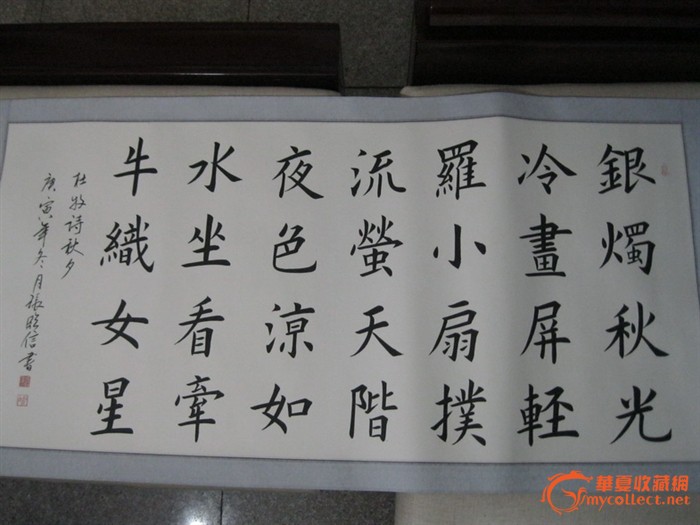 銀燭秋光
冷畫屏軽
羅小扇撲
流螢天階
夜色涼如
水坐看牽
牛織女星
杜牧詩秋夕
庚寅年冬月張
信書
華夏收藏網
mycollect.net